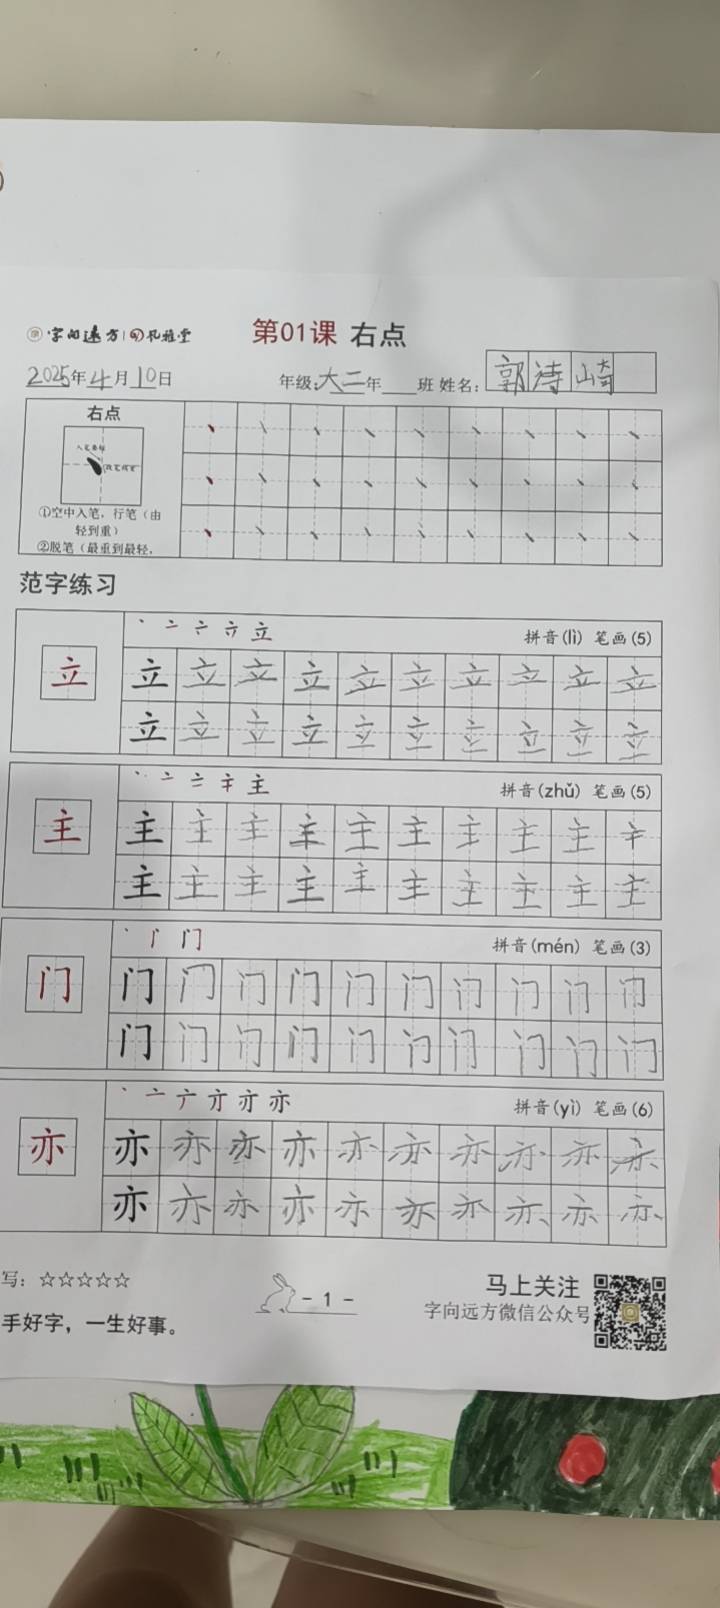 字向远方 孔雅堂
第01课 右点
2025年4月10日 年级:大二年 班 姓名: 郭诗崎
右点
①空中入笔，行笔（由
轻到重）
②脱笔（最重到最轻，
范字练习
立 拼音(lì) 笔画(5)
立 立 立 立 立 立 立 立 立 立 立
立 立 立 立 立 立 立 立 立 立
主 拼音(zhǔ) 笔画(5)
主 主 主 主 主 主 主 主 主 主 主
主 主 主 主 主 主 主 主 主 主
门 拼音(mén) 笔画(3)
门 门 门 门 门 门 门 门 门 门 门
门 门 门 门 门 门 门 门 门 门
亦 拼音(yì) 笔画(6)
亦 亦 亦 亦 亦 亦 亦 亦 亦 亦 亦
亦 亦 亦 亦 亦 亦 亦 亦 亦 亦
写：☆☆☆☆☆
- 1 -
马上关注
手好字，一生好事。
字向远方微信公众号